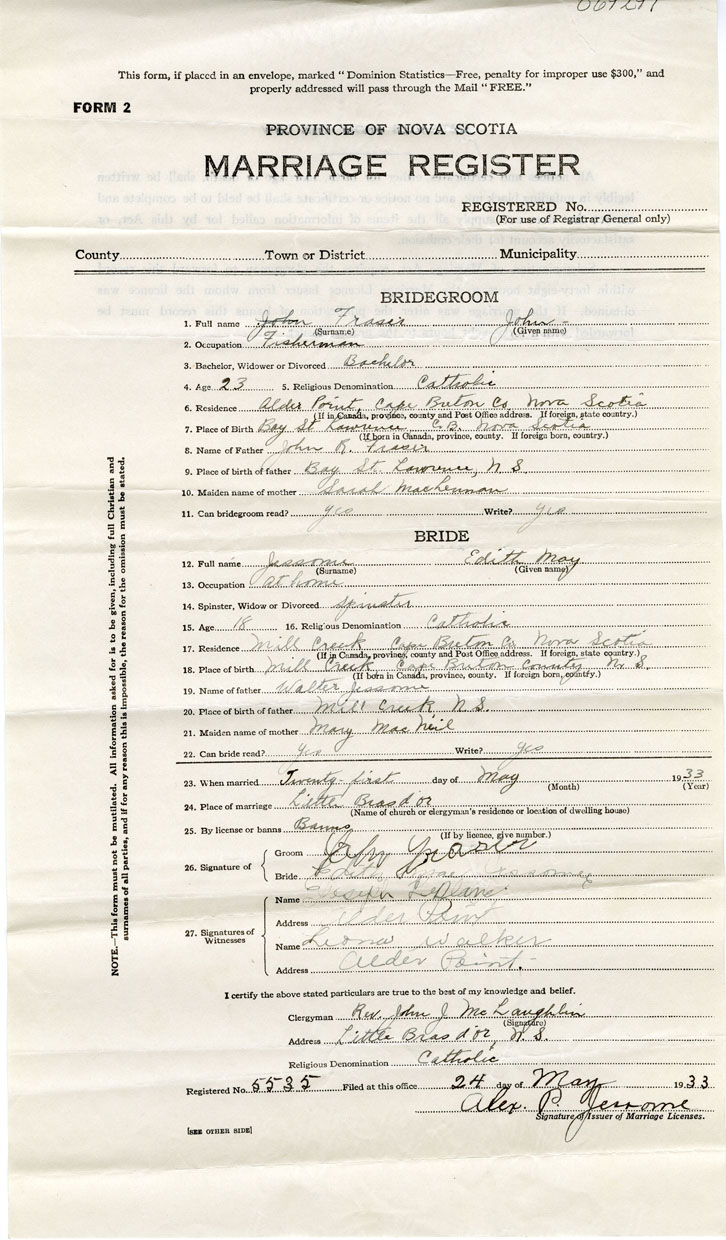 This form, if placed in an envelope, marked "Dominion Statistics—Free, penalty for improper use $300," and
properly addressed will pass through the Mail "FREE."
FORM 2
PROVINCE OF NOVA SCOTIA
MARRIAGE REGISTER
REGISTERED No.
(For use of Registrar General only)
County Town or District Municipality
BRIDEGROOM
1. Full name John Fraser John
(Surname) (Given name)
2. Occupation Fisherman
3. Bachelor, Widower or Divorced Bachelor
4. Age 23 5. Religious Denomination Catholic
6. Residence Alder Point, Cape Breton Co Nova Scotia
(If in Canada, province, county and Post Office address. If foreign, state country.)
7. Place of Birth Bay St Lawrence C.B. Nova Scotia
(If born in Canada, province, county. If foreign born, country.)
8. Name of Father John R. Fraser
9. Place of birth of father Bay St. Lawrence, N S.
10. Maiden name of mother Sarah MacKennon
11. Can bridegroom read? yes Write? yes
BRIDE
12. Full name Jessome Edith May
(Surname) (Given name)
13. Occupation at home
14. Spinster, Widow or Divorced Spinster
15. Age 18 16. Religious Denomination Catholic
17. Residence Mill Creek Cape Breton Co Nova Scotia
(If in Canada, province, county and Post Office address. If foreign, state country.)
18. Place of birth Mill Creek Cape Breton County N. S.
(If born in Canada, province, county. If foreign born, country.)
19. Name of father Walter Jessome
20. Place of birth of father Mill Creek N.S.
21. Maiden name of mother Mary MacNeil
22. Can bride read? Yes Write? yes
23. When married Twenty-first day of May 1933
(Month) (Year)
24. Place of marriage Little Bras d'or
(Name of church or clergyman's residence or location of dwelling house)
25. By license or banns Banns
(If by licence, give number.)
26. Signature of
Groom John Fraser
Bride Edith Jessome
27. Signatures of Witnesses
Name Joseph LeBlanc
Address Alder Point
Name Leona Walker
Address Alder Point.
I certify the above stated particulars are true to the best of my knowledge and belief.
Clergyman Rev. John J. McLaughlin
(Signature)
Address Little Bras d'or, N.S.
Religious Denomination Catholic
Registered No. 5535 Filed at this office 24 day of May 1933
Alex. P. Jessome
Signature of Issuer of Marriage Licenses.
[SEE OTHER SIDE]
NOTE.—This form must not be mutilated. All information asked for is to be given, including full Christian and
surnames of all parties, and if for any reason this is impossible, the reason for the omission must be stated.